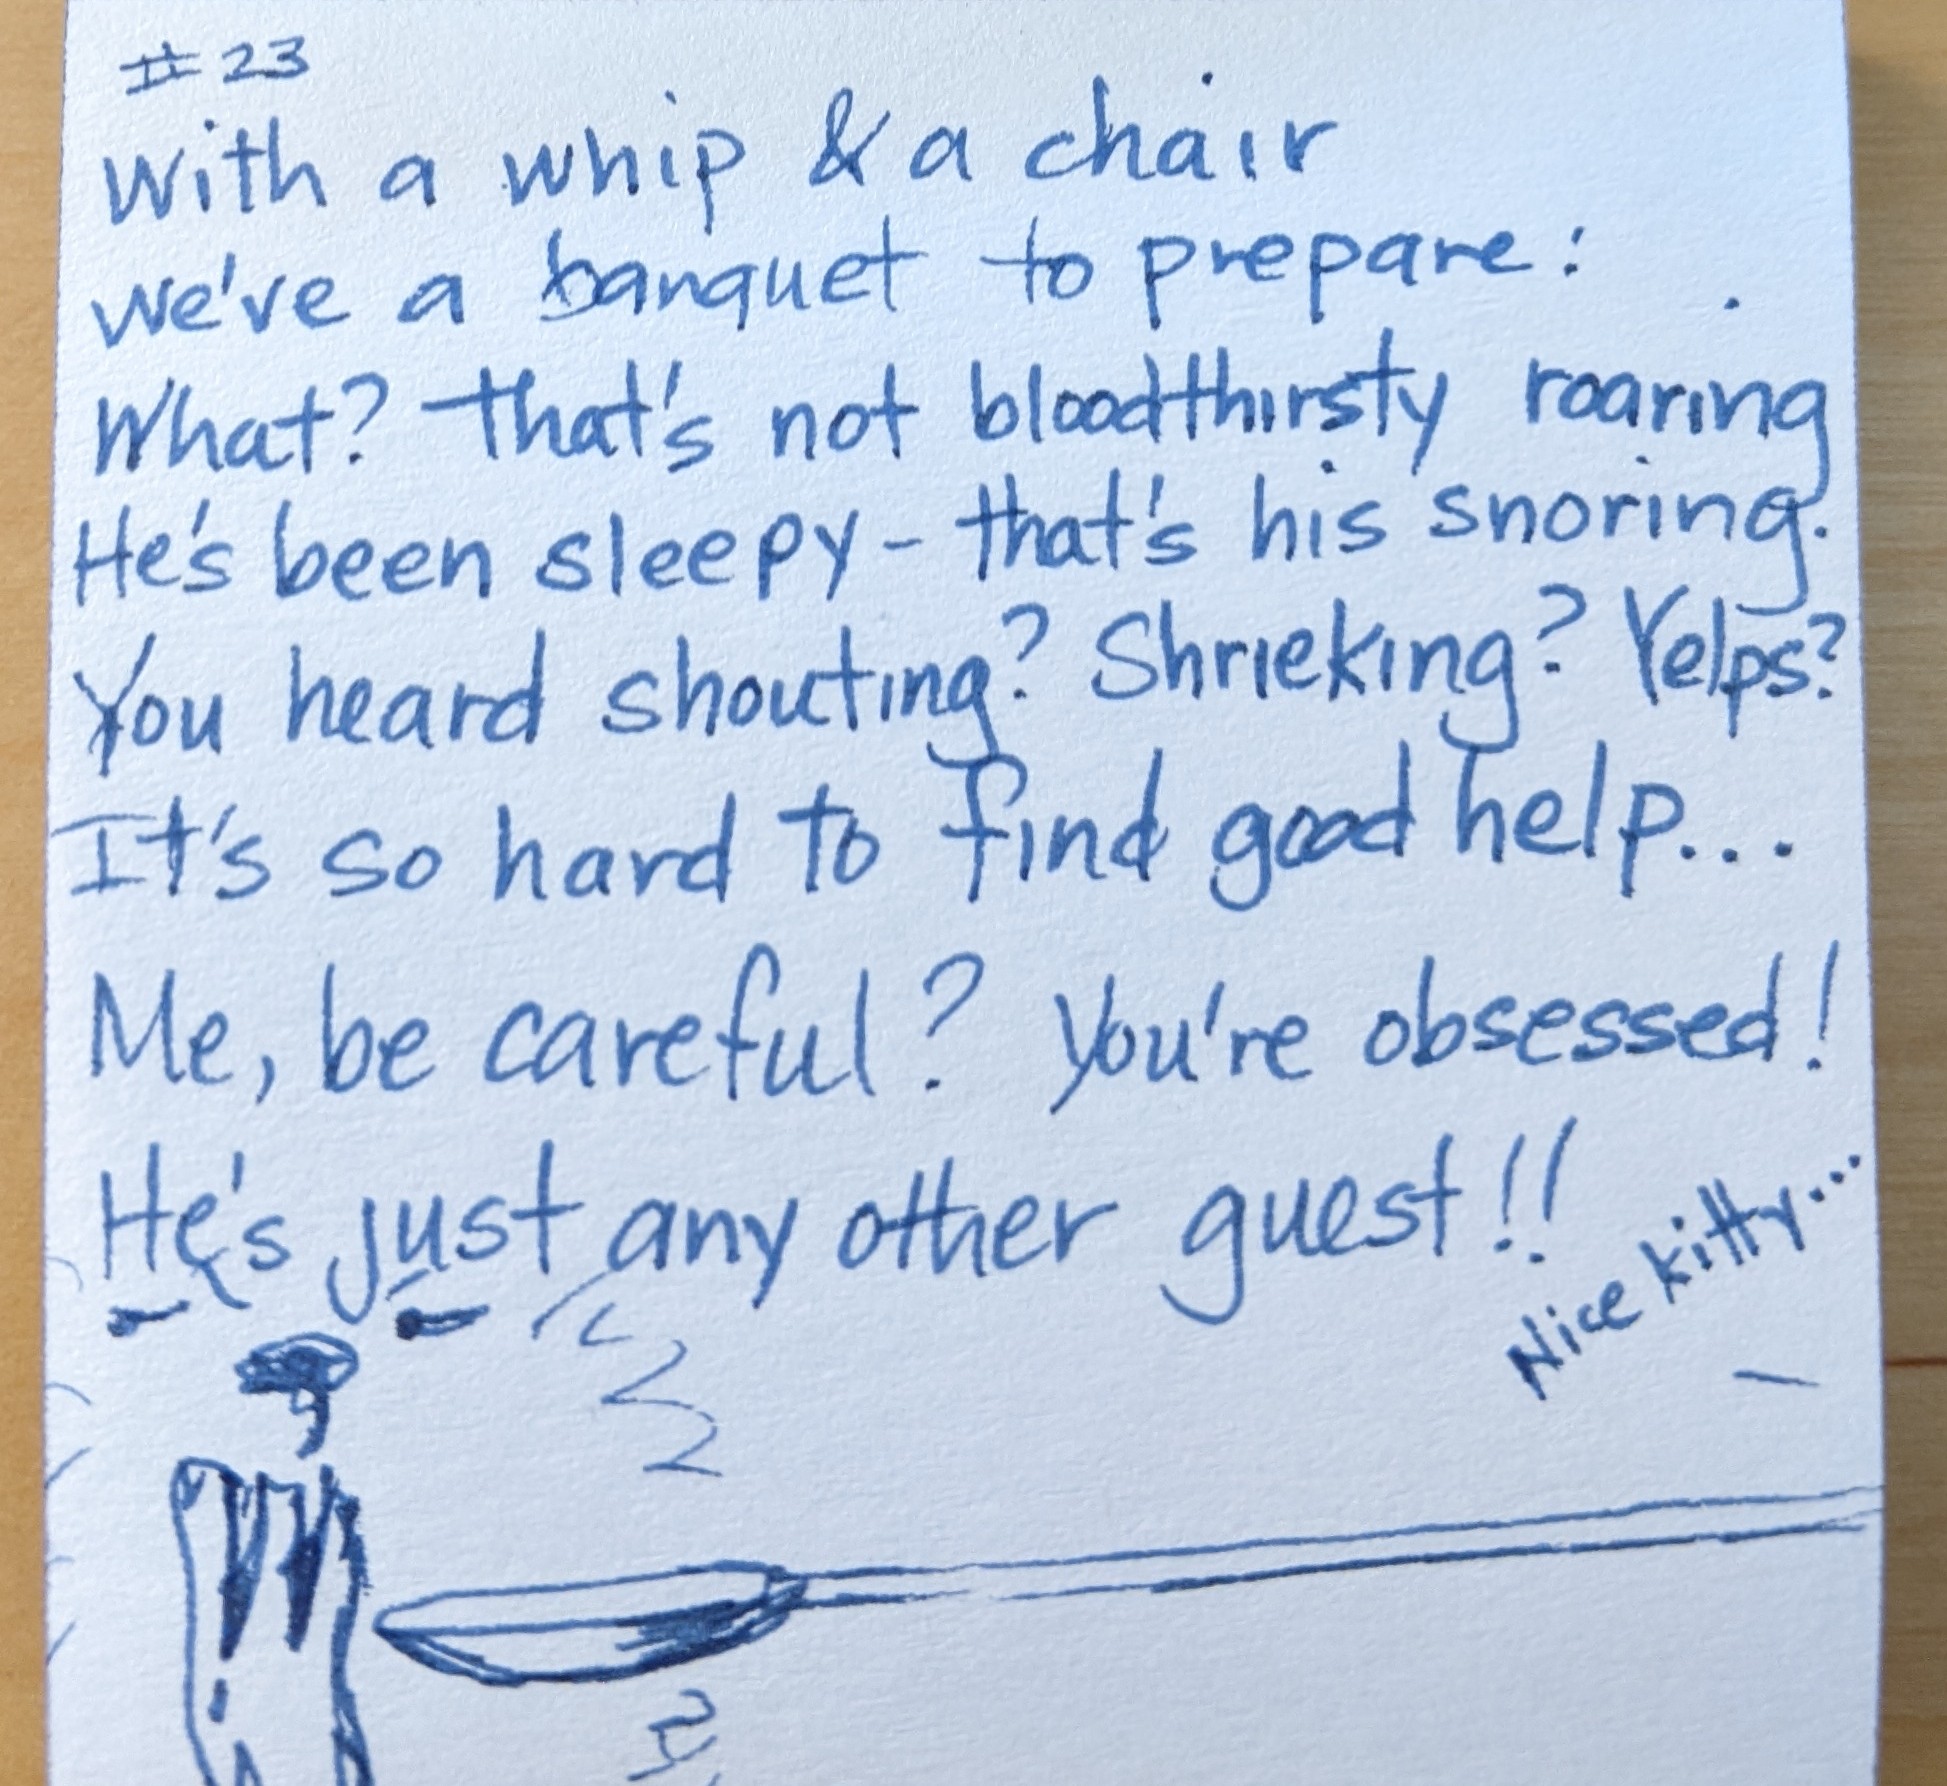 #23
With a whip & a chair
we've a banquet to prepare:
What? That's not bloodthirsty roaring
He's been sleepy - that's his snoring.
You heard shouting? Shrieking? Yelps?
It's so hard to find good help...
Me, be careful? You're obsessed!
He's just any other guest!!
Nice kitty...